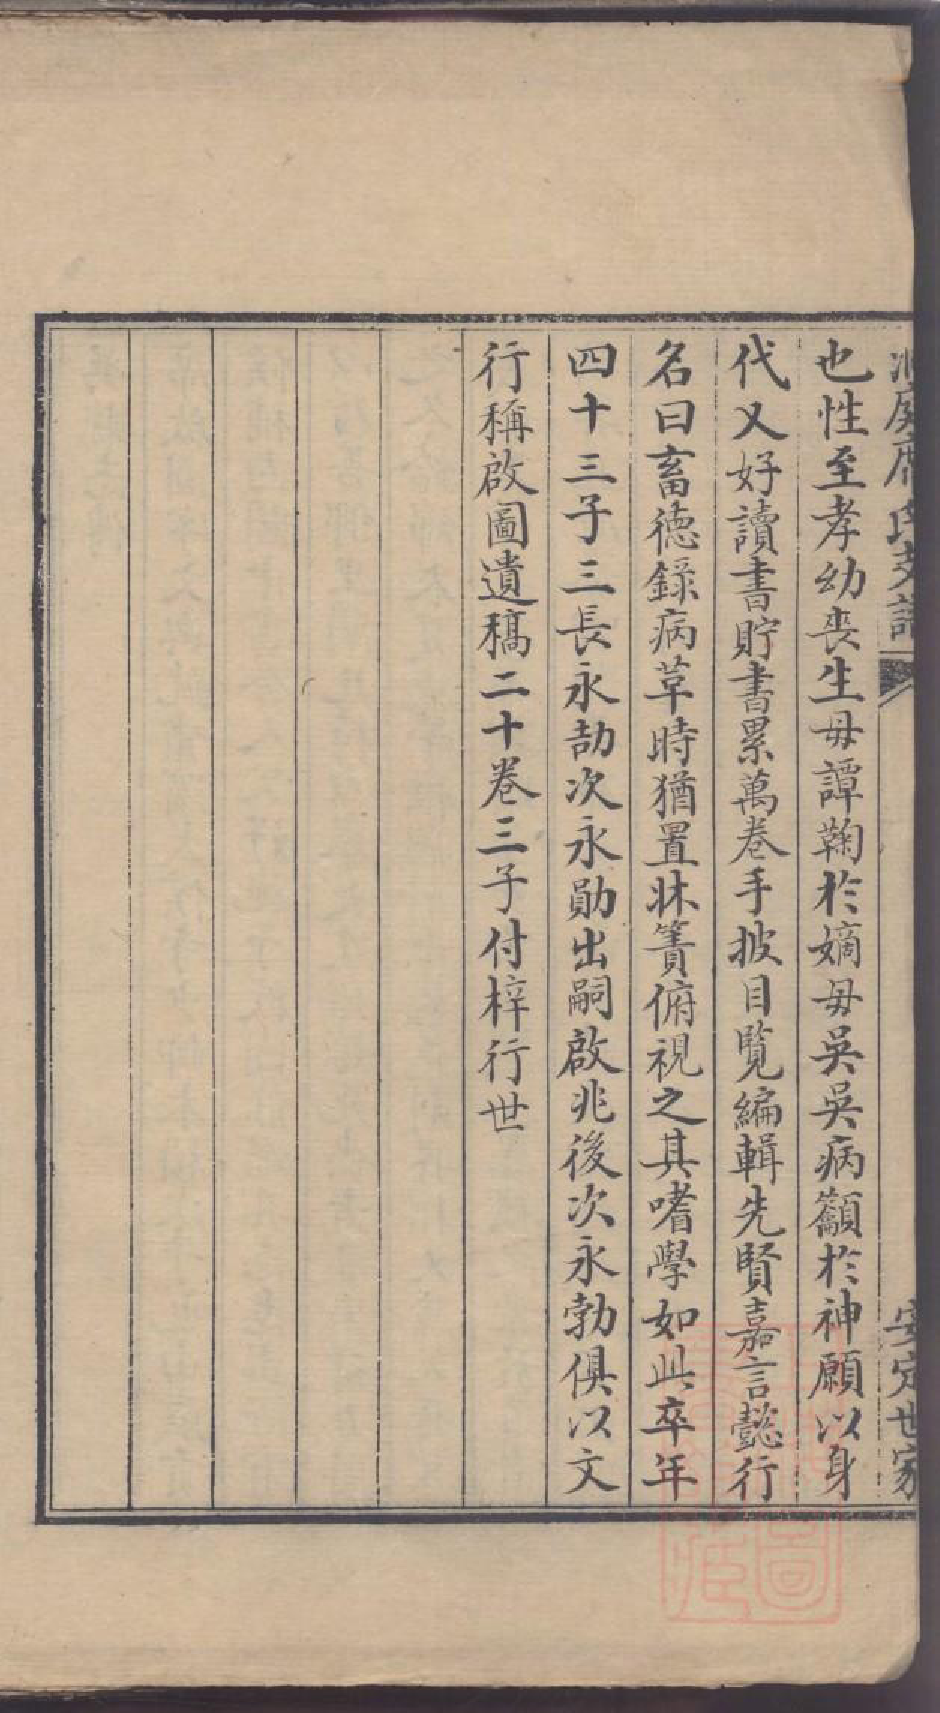 洞庭席氏支譜
安定世家
也性至孝幼喪生母譚鞠於嫡母吳吳病籲於神願以身
代又好讀書貯書累萬卷手披目覽編輯先賢嘉言懿行
名曰畜德錄病革時猶置牀簀俯視之其嗜學如此卒年
四十三子三長永劼次永勛出嗣啟兆後次永勃俱以文
行稱啟圖遺稿二十卷三子付梓行世